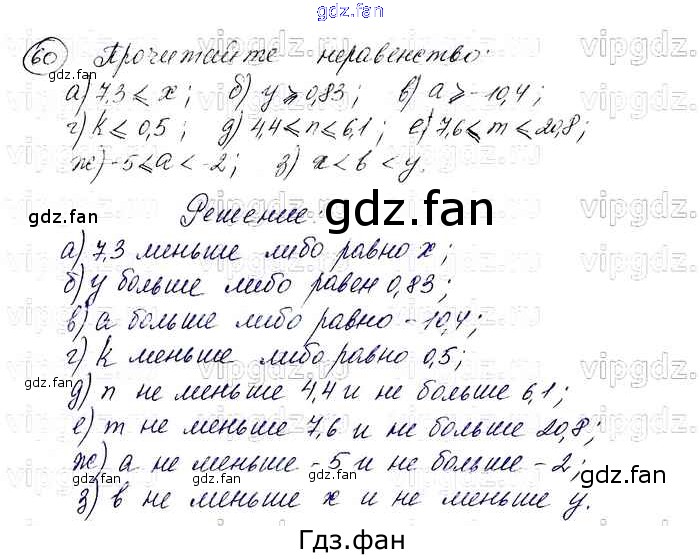 gdz.fan
60 Прочитайте неравенство:
а) 7,3 ⩽ х; б) у ⩾ 0,83; в) а ⩾ -10,4;
г) k ⩽ 0,5; д) 4,4 ⩽ n ⩽ 6,1; е) 7,6 ⩽ m ⩽ 20,8;
ж) -5 ⩽ а < -2; з) х < в < у.
Решение:
а) 7,3 меньше либо равно х;
б) у больше либо равен 0,83;
в) а больше либо равно -10,4;
г) k меньше либо равно 0,5;
д) n не меньше 4,4 и не больше 6,1;
е) m не меньше 7,6 и не больше 20,8;
ж) а не меньше -5 и не больше -2;
з) в не меньше х и не меньше у.
Гдз.фан